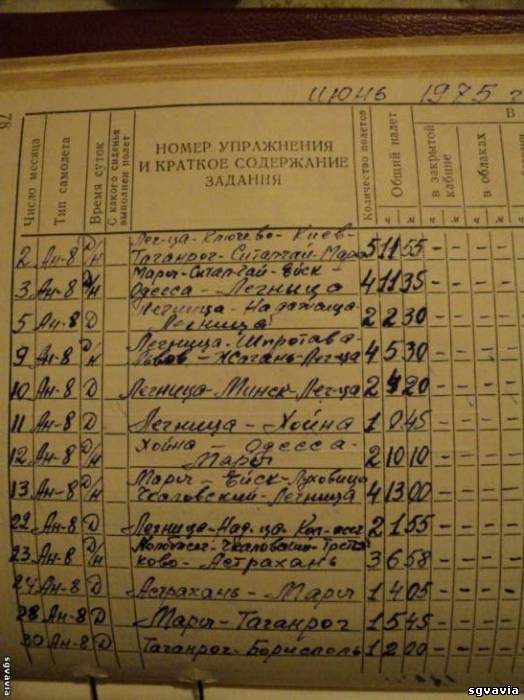 ИЮНЬ 1975 г
78
Число месяца
Тип самолета
Время суток
С какого сиденья выполнен полет
НОМЕР УПРАЖНЕНИЯ
И КРАТКОЕ СОДЕРЖАНИЕ
ЗАДАНИЯ
Количество полетов
Общий налет
В
в закрытой кабине
в облаках
ч м ч м ч м
Лег-ца-Ключево-Киев-
2 Ан-8 Д/Н Таганрог-Ситалчай-Мары 5 11 55 - - - -
Мары-Ситалчай-Ейск-
3 Ан-8 Д/Н Одесса - Легница 4 11 35 - - - -
Легница-
5 Ан-8 Д Легница 2 2 30 - - - -
Легница-Шпротава-
9 Ан-8 Д/Н Львов-Жагань-Лег-ца 4 5 30 - - - -
10 Ан-8 Д Легница-Минск-Лег-ца 2 4 20 - - - -
11 Ан-8 Д Легница - Хойна 1 0 45 - - - -
Хойна - Одесса-
12 Ан-8 Д/Н Мары 2 10 10 - - - -
Мары - Ейск-Луховицы
13 Ан-8 Д/Н Чкаловский-Легница 4 13 00 - - - -
22 Ан-8 Д Легница- 2 1 55 - - - -
Чкаловский-Третья
23 Ан-8 Д/Н ково-Астрахань 3 6 58 - - - -
24 Ан-8 Д Астрахань - Мары 1 4 05 - - - -
28 Ан-8 Д Мары-Таганрог 1 5 45 - - - -
30 Ан-8 Д Таганрог-Борисполь 1 2 00 - - - -
sgvavia
sgvavia